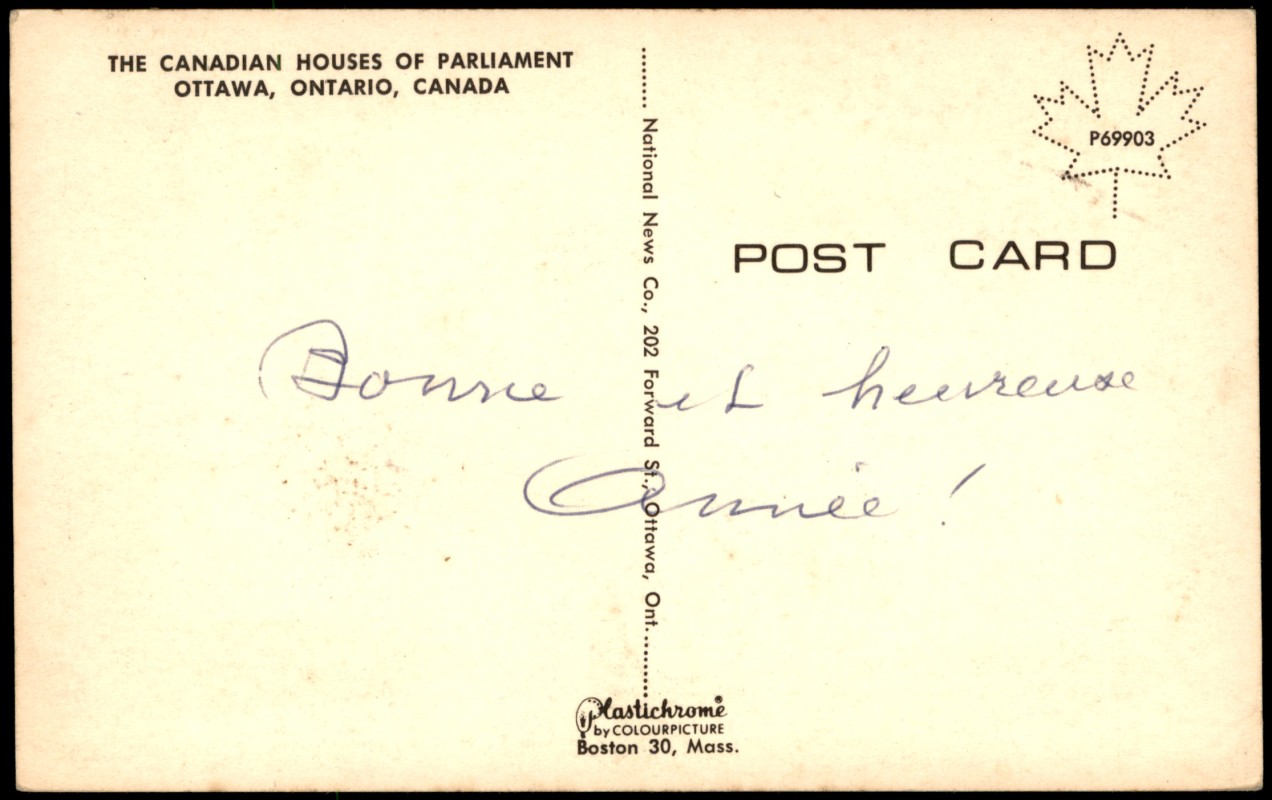 THE CANADIAN HOUSES OF PARLIAMENT
OTTAWA, ONTARIO, CANADA
P69903
POST CARD
National News Co., 202 Forward St., Ottawa, Ont.
Bonne et heureuse
Année !
Plastichrome®
by COLOURPICTURE
Boston 30, Mass.